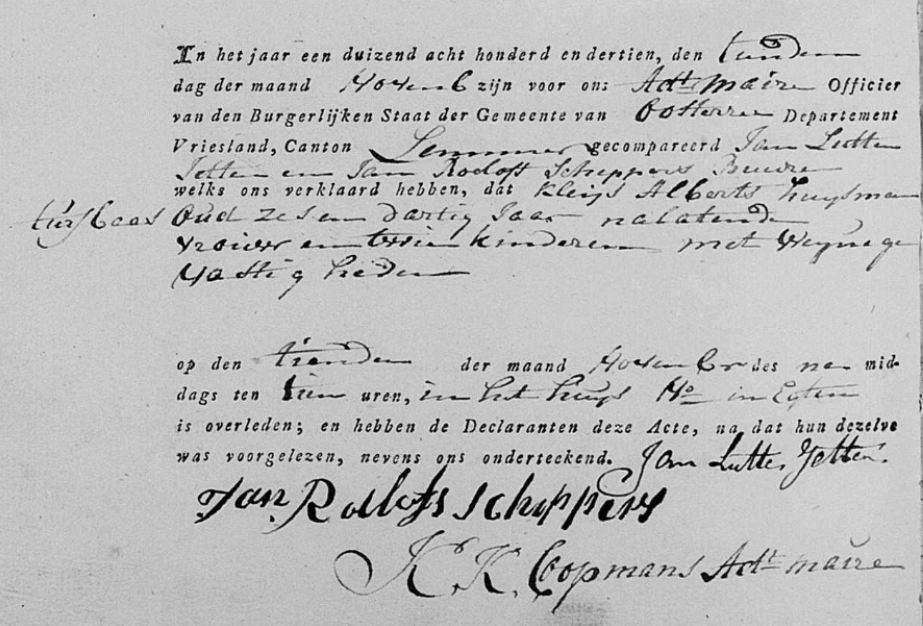 In het jaar een duizend acht honderd en dertien, den tienden
dag der maand Novemb zijn voor ons Adt maire Officier
van den Burgerlijken Staat der Gemeente van Oosterzee Departement
Vriesland, Canton Lemmer gecompareerd Jan Lutten
Jetten en Jan Roeloft Scheppers Buuren
welks ons verklaard hebben, dat Kleijs Alberts Huysman
turfbaas Oud zes en dartig Jaar nalatende
vrouw en kinderen met
vastigheden
op den tienden der maand November des na mid-
dags ten tien uren, in het huys No in Egten
is overleden; en hebben de Declaranten deze Acte, na dat hun dezelve
was voorgelezen, nevens ons onderteekend. Jan Luttes Jetten.
Jan Roelofs Schippers
K. K. Coopmans Adt maire